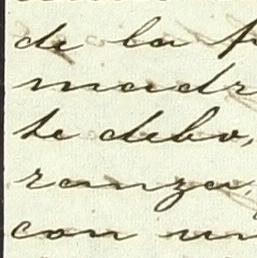 de la
madr
te debo,
ranza,
con un